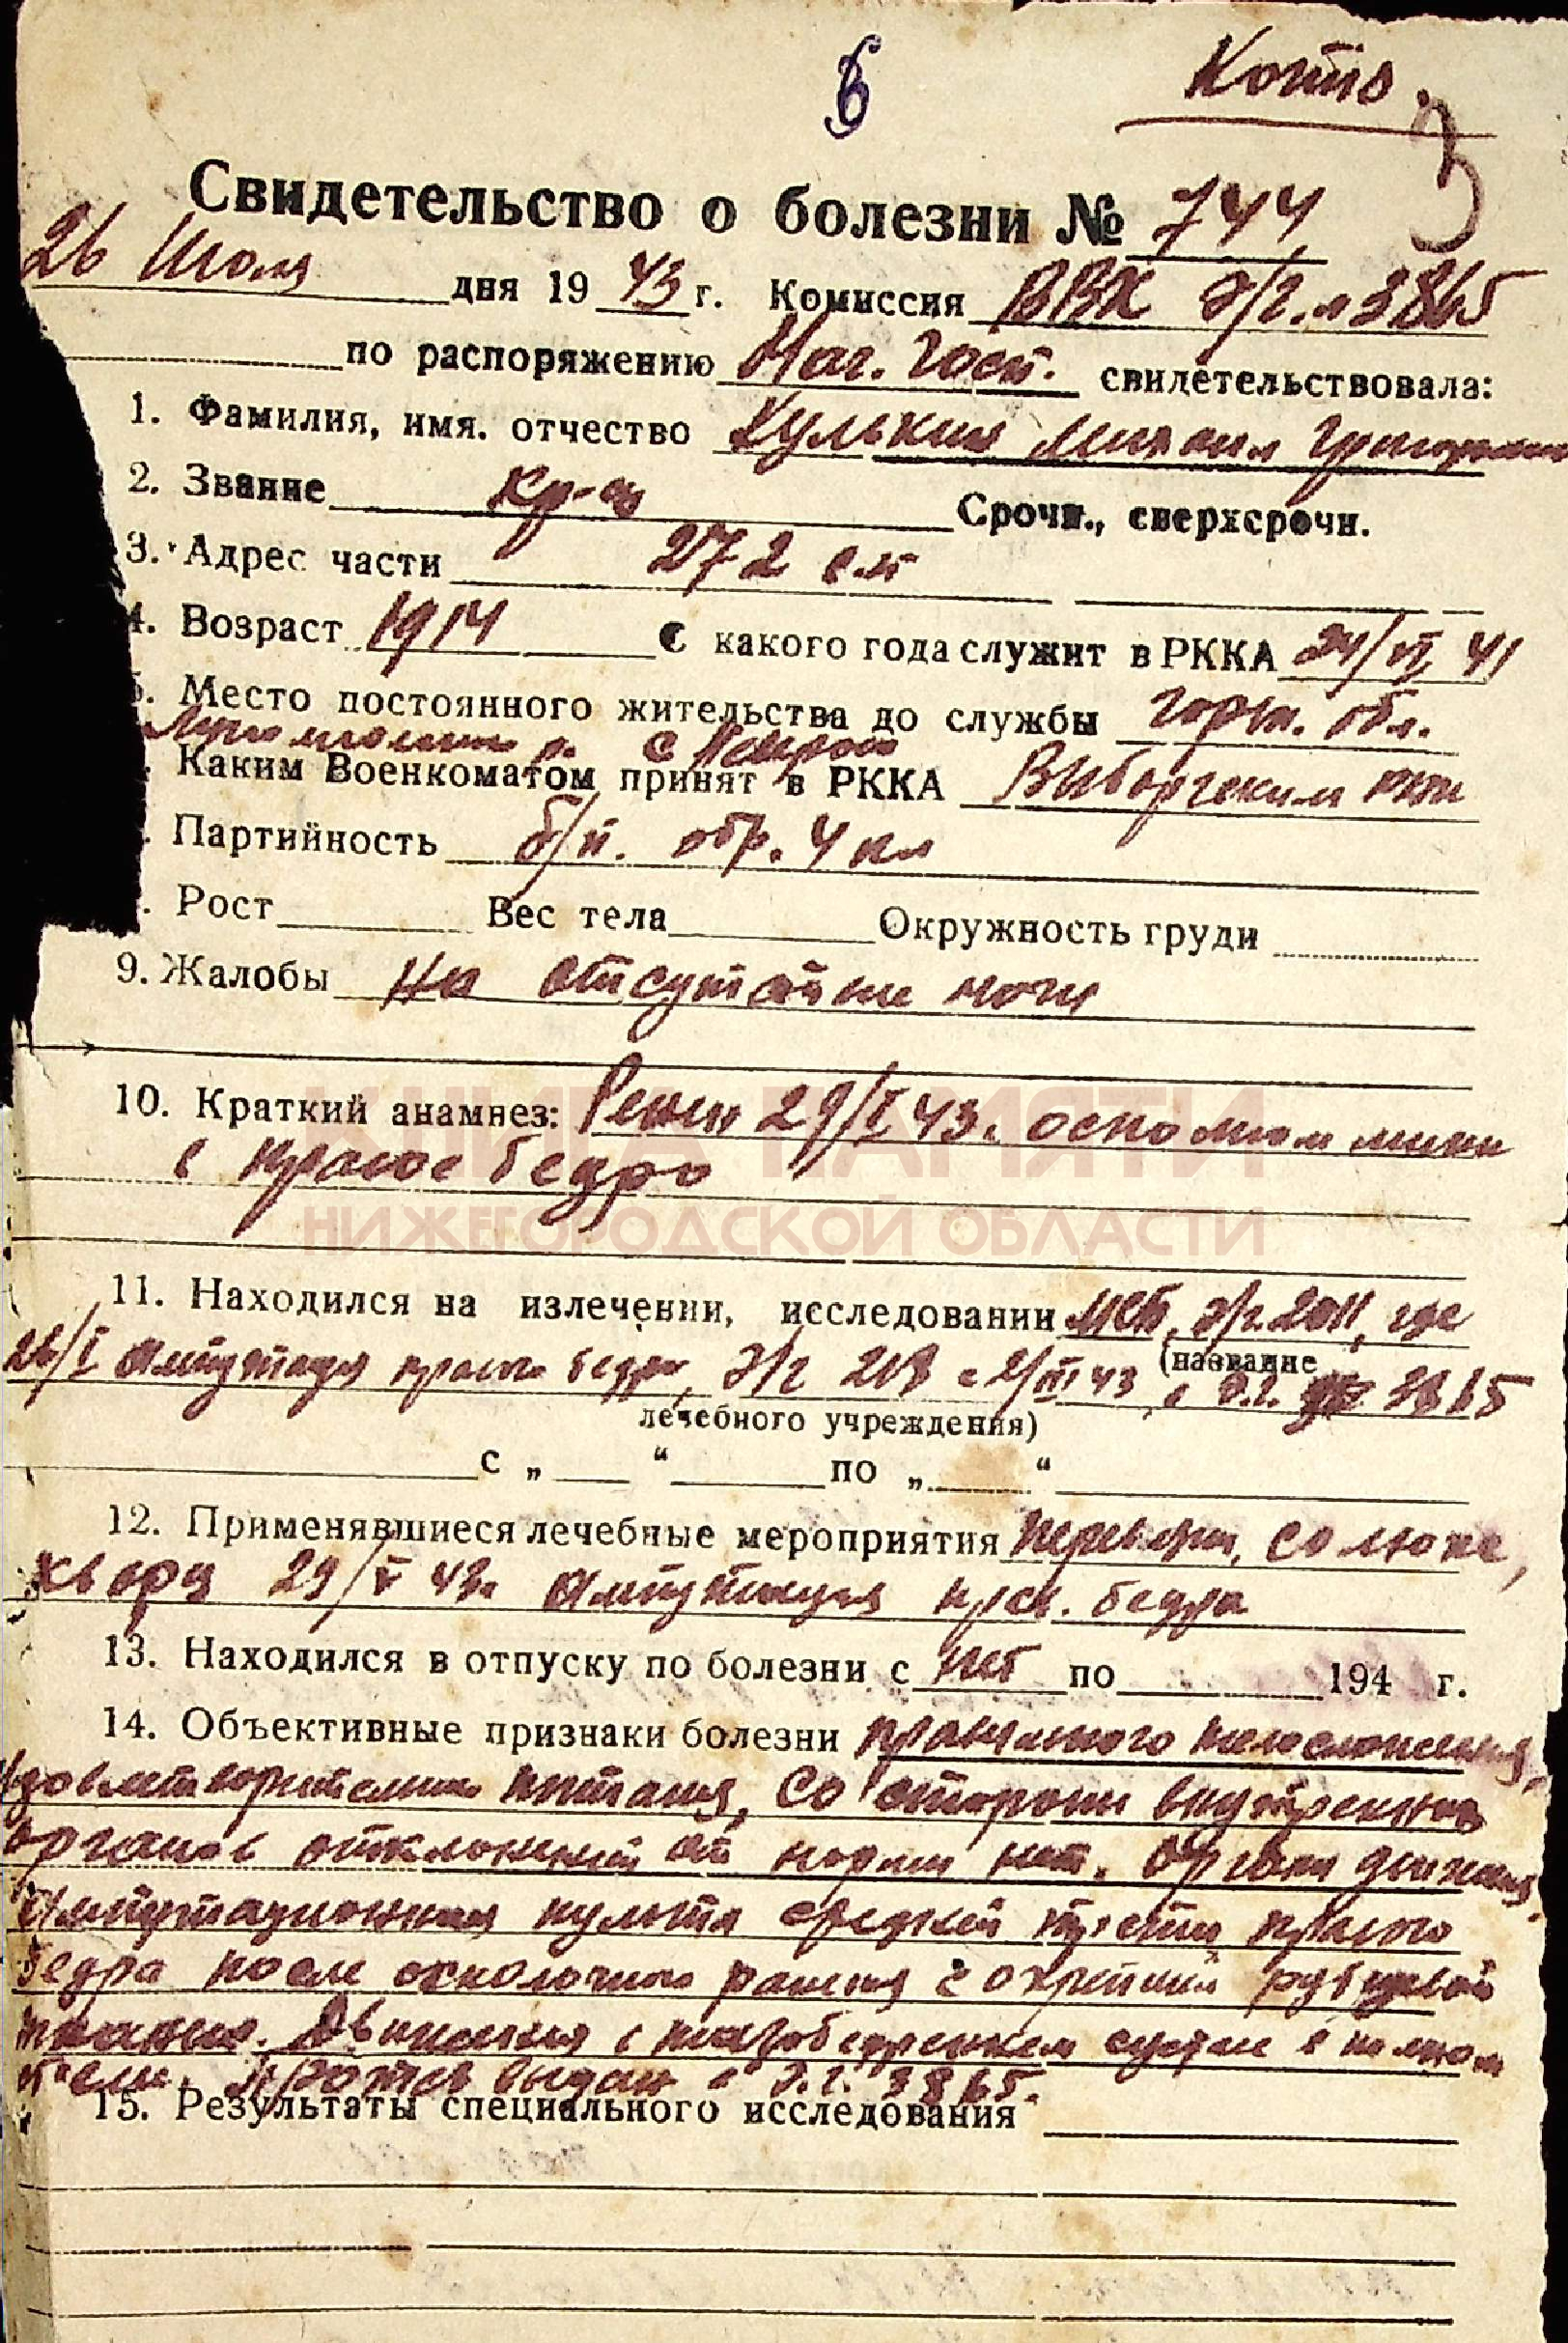 6
Копия.
3
Свидетельство о болезни № 744
26 Июля дня 1943 г. Комиссия ВВК э/г. № 3865
по распоряжению Нач. Госп. свидетельствовала:
1. Фамилия, имя. отчество Кулькин Михаил Григорьевич
2. Звание кр-ец Срочн., сверхсрочн.
3. Адрес части 272 сп
4. Возраст 1914 С какого года служит в РККА 24/VI 41
5. Место постоянного жительства до службы Горьк. обл.
р. с
Каким Военкоматом принят в РККА Выборгским РВК
Партийность б/п. обр. 4 кл
Рост Вес тела Окружность груди
9. Жалобы На отсутствие ноги
10. Краткий анамнез: Ранен 29/I 43г. осколком мины
в правое бедро
КНИГА ПАМЯТИ
НИЖЕГОРОДСКОЙ ОБЛАСТИ
11. Находился на излечении, исследовании МСБ, э/г. 2011, где
26/I ампутация правого бедра, э/г 2813 с 2/III 43, в э.г. 3865
(название
лечебного учреждения)
с „ “ по „ “
12. Применявшиеся лечебные мероприятия перевязки, солюкс,
кварц 29/V 43г. ампутация прав. бедра
13. Находился в отпуску по болезни с нет по 194 г.
14. Объективные признаки болезни правильного телосложения,
удовлетворительного питания, Со стороны внутренних
органов отклонений от нормы нет. Органы движения:
Ампутационная культя средней трети правого
бедра после осколочного ранения с окрепшей рубцовой
тканью. Движения в тазобедренном суставе в полном
Протез выдан в э.г. 3865.
15. Результаты специального исследования